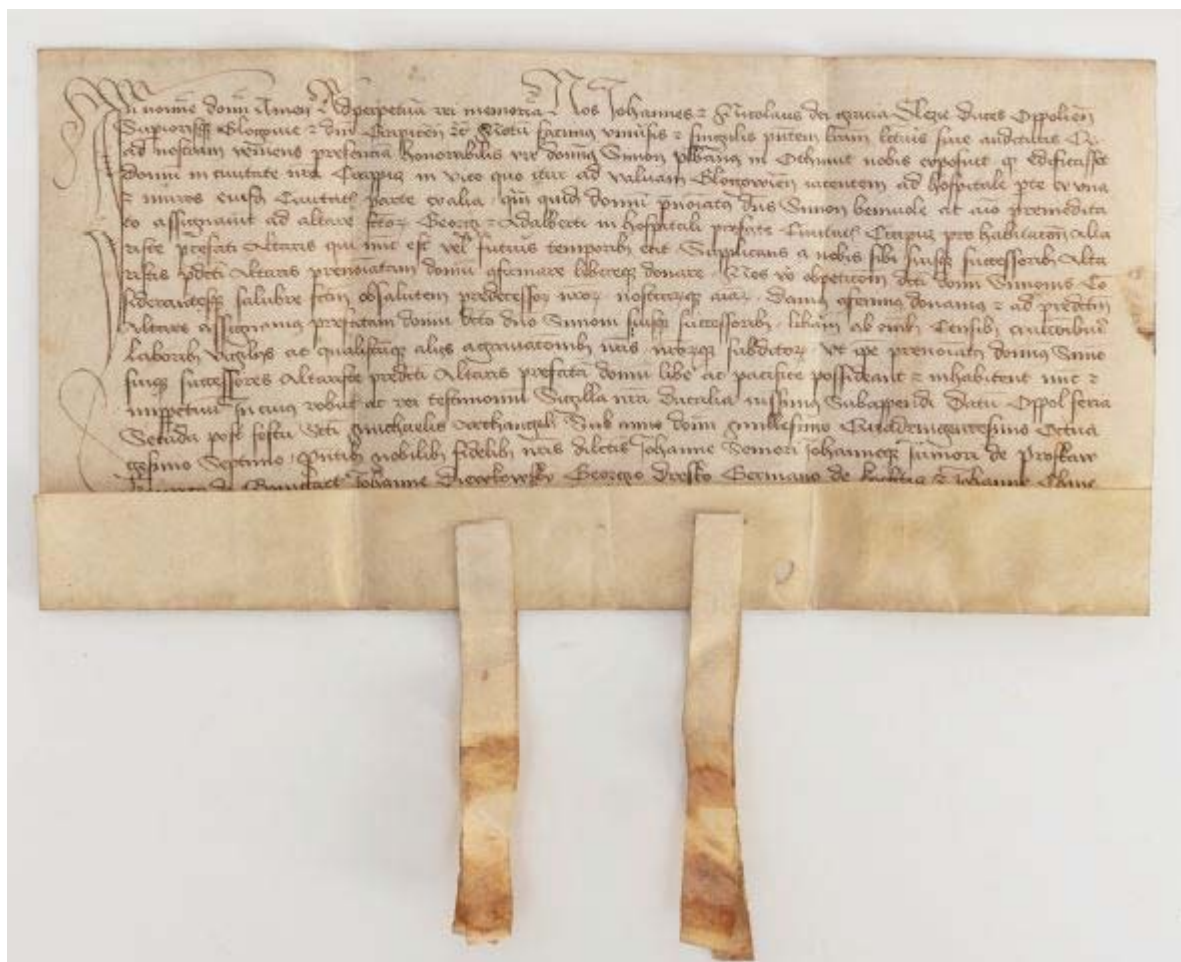 In nomine domini Amen Ad perpetuam rei memoriam Nos Johannes et Nicolaus dei gracia Slezie Duces Opolien
Superiorisque Glogovie et dni etc Notum facimus universis et singulis
ad nostram veniens presenciam honorabilis vir dominus Simon plebanus in Othmut nobis exposuit qz edificasset
domum in civitate nra in vico quo itur ad valvam Glogovien iacentem ad hospitale pte ex una
et muros eiusd Civitatis parte ex alia quidem domum dns Simon benivole ac aio premedita
to assignavit ad altare sctor Georgii et Adalberti in hospitali prefate Civitatis pro habitacione Alta
riste prefati Altaris qui nunc est vel futuris temporibus erit Supplicans a nobis sibi suisque successoribus Alta
ristis pdicti Altaris prenominatam domum confirmare libereque donare Nos vero ob peticionem dicti domini Simonis Co
siderantesque salubre factum ob salutem predecessorum nrorum nostrarumque animarum Damus confirmamus donamus et ad predictum
Altare assignamus prefatam domum dicto dno Simoni suisque successoribus liberam ab omnibus Censibus
laboribus vigiliis ac qualibuscunque aliis nris nrorumque subditorum Ut ipse prenominatus dominus Simo
suique successores Altariste predicti Altaris prefatam domum libere ac pacifice possideant et inhabitent nunc et
inperpetuum In cuius robur ac rei testimonium Sigilla nra Ducalia iussimus Subappendi Datum Oppol feria
Secunda post festum Scti Michaelis Archangeli Sub anno domini Millesimo Quadringentesimo Octua
gesimo Septimo nobilibus fidelibus nris dilectis Johanne Seniori Johanneque Juniori de Proskaw
Johanne Georgio Germano de Johanne